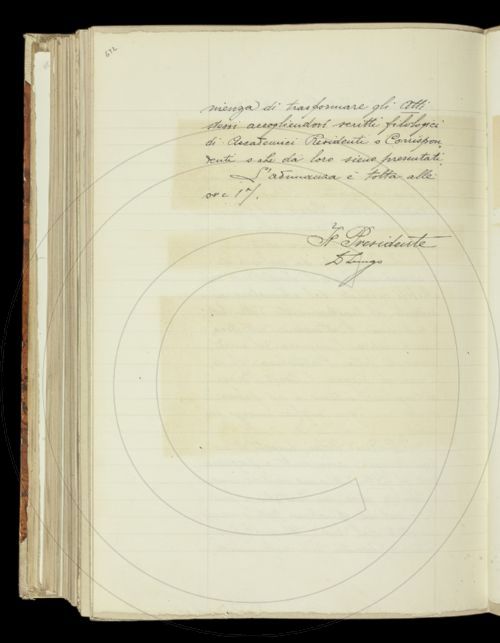 672
nienza di trasformare gli Atti
stessi accogliendovi scritti filologici
di Accademici Residenti o Corrispon,
denti o che da loro sieno presentati.
L'adunanza è tolta alle
ore 17.
Il Presidente